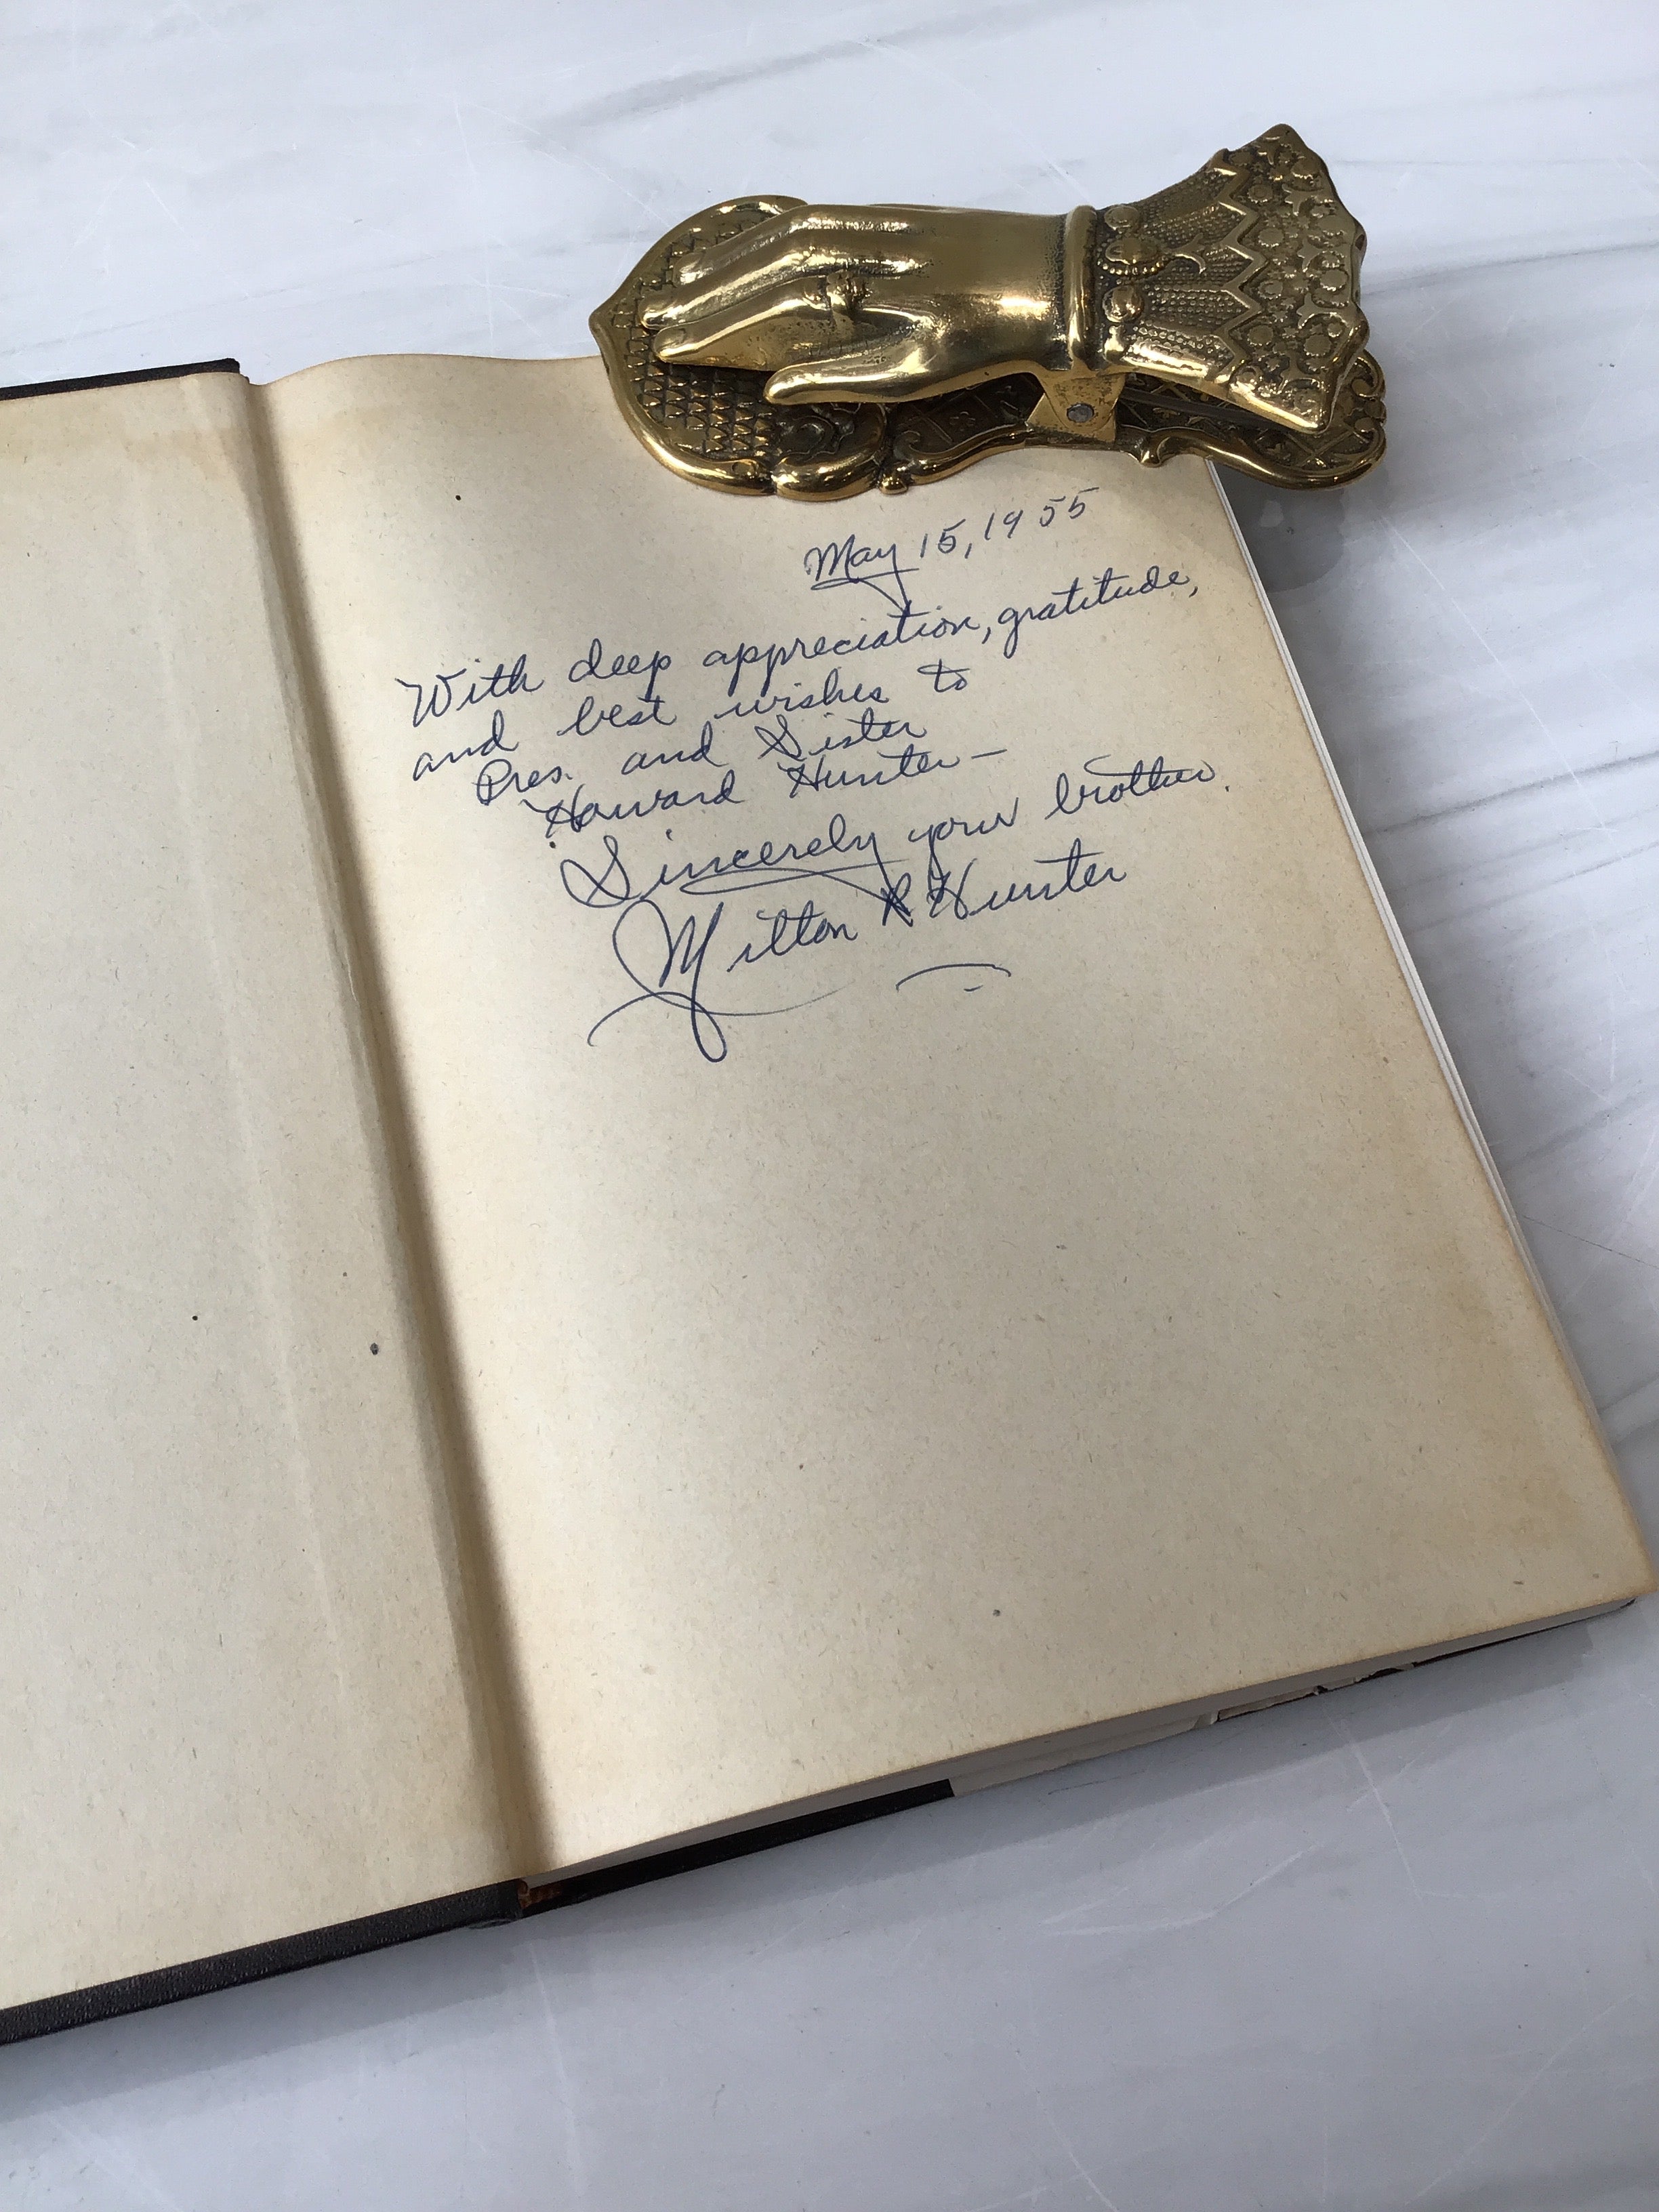 May 15, 1955
With deep appreciation, gratitude,
and best wishes to
Pres. and Sister
Howard Hunter –
Sincerely your brother.
Milton R Hunter